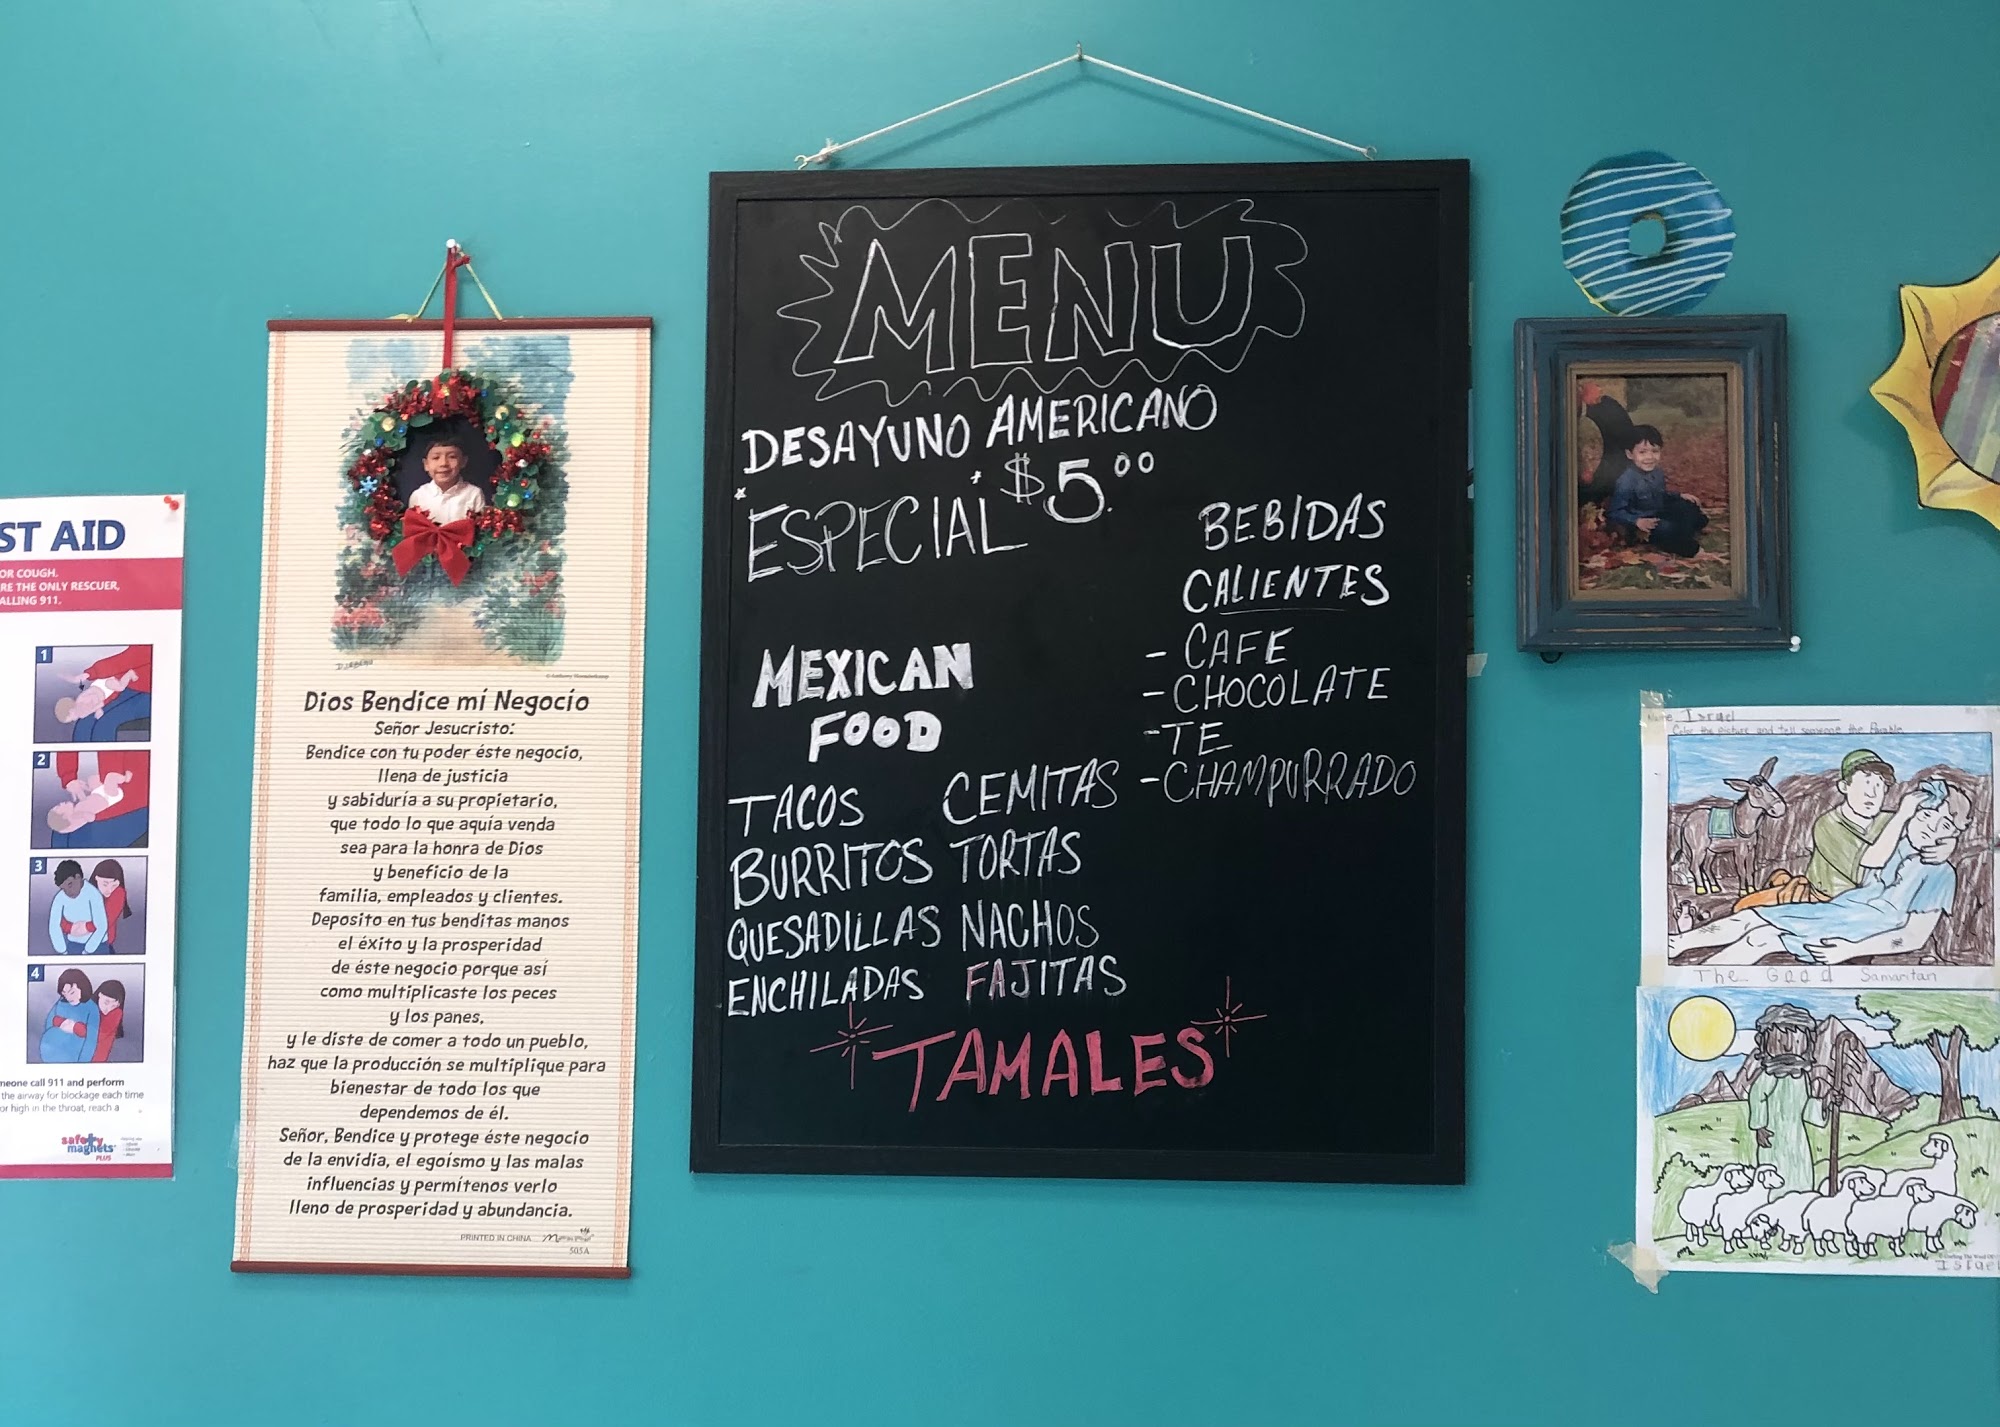 ST AID
OR COUGH.
RE THE ONLY RESCUER,
ALLING 911.
1
2
3
4
meone call 911 and perform
the airway for blockage each time
or high in the throat, reach a
safety
magnets
PLUS
Dios Bendice mi Negocio
Señor Jesucristo:
Bendice con tu poder éste negocio,
llena de justicia
y sabiduría a su propietario,
que todo lo que aquía venda
sea para la honra de Dios
y beneficio de la
familia, empleados y clientes.
Deposito en tus benditas manos
el éxito y la prosperidad
de éste negocio porque así
como multiplicaste los peces
y los panes,
y le diste de comer a todo un pueblo,
haz que la producción se multiplique para
bienestar de todo los que
dependemos de él.
Señor, Bendice y protege éste negocio
de la envidia, el egoísmo y las malas
influencias y permítenos verlo
lleno de prosperidad y abundancia.
PRINTED IN CHINA
505A
MENU
DESAYUNO AMERICANO
ESPECIAL $5.00
BEBIDAS
CALIENTES
- CAFE
- CHOCOLATE
- TE
- CHAMPURRADO
MEXICAN
FOOD
TACOS CEMITAS
BURRITOS TORTAS
QUESADILLAS NACHOS
ENCHILADAS FAJITAS
TAMALES
Name Israel
Color the picture and tell someone the Parable
The Good Samaritan
Israel